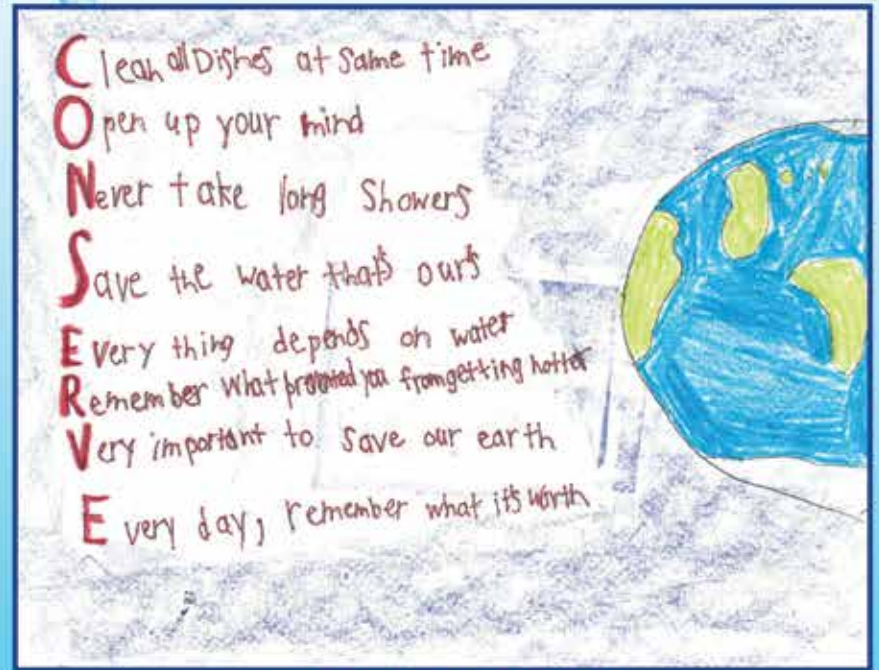 Clean all Dishes at same time
Open up your mind
Never take long Showers
Save the water that's our's
Every thing depends on water
Remember what you from getting hotter
Very important to save our earth
Every day, remember what it's worth